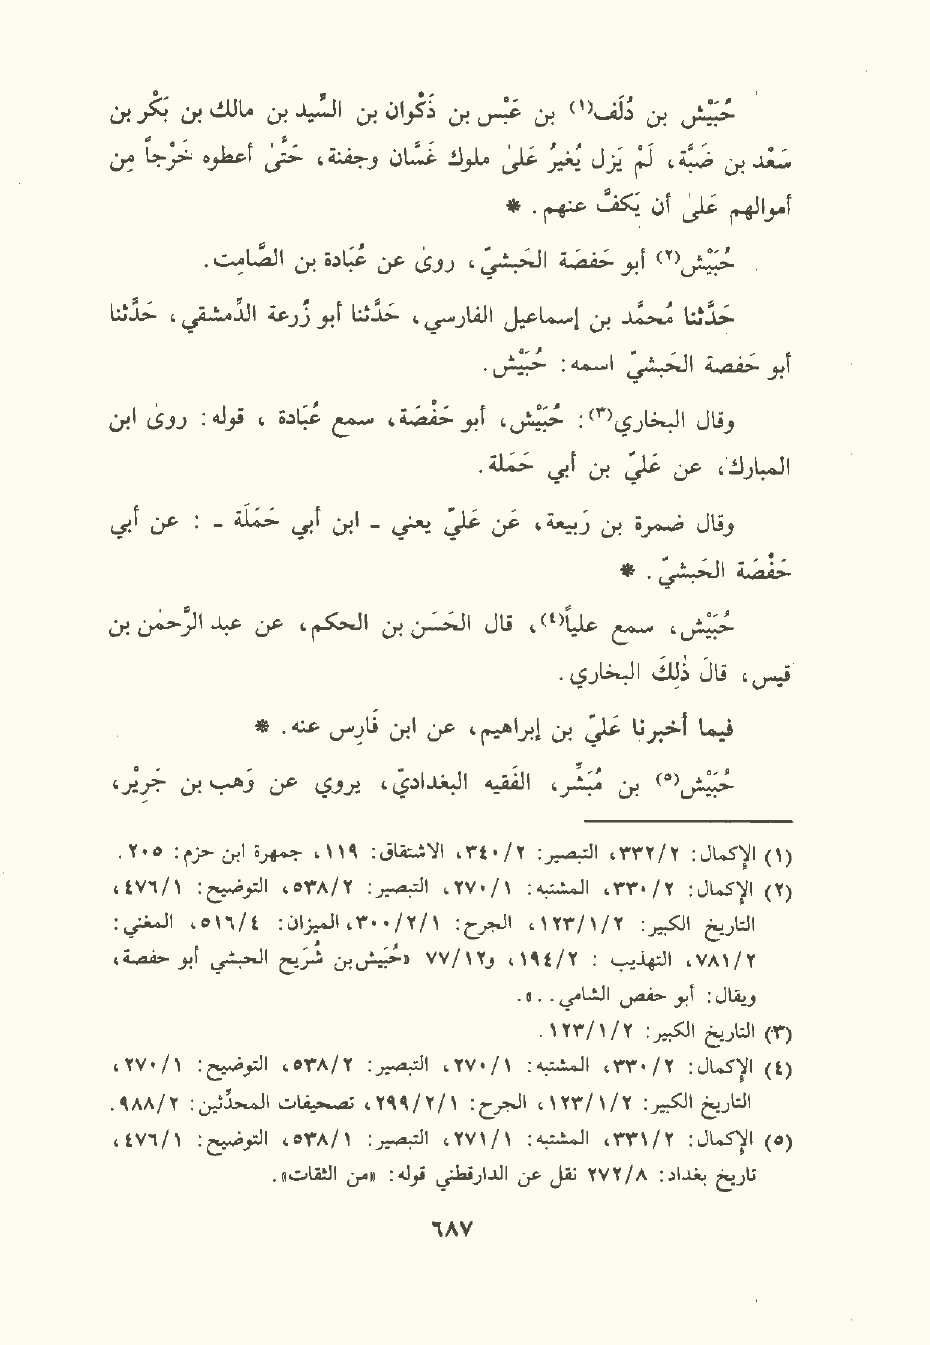 حُبَيْش بن دُلَف(١) بن عَبْس بن ذَكْوان بن السَّيد بن مالك بن بَكْر بن
سَعْد بن ضَبَّة، لَمْ يَزل يُغيْرُ علىٰ ملوك غَسَّان وجفنة، حَتَّىٰ أعطوه خَرْجاً مِن
أموالهم علىٰ أن يَكفَّ عنهم. *
حُبَيْش(٢) أبو حَفصَة الحَبشيّ، روىٰ عن عُبَادة بن الصَّامِت.
حَدَّثنا مُحمَّد بن إسماعيل الفارسي، حَدَّثنا أبو زُرعة الدِّمشقي، حَدَّثنا
أبو حَفصة الحَبشيّ اسمه: حُبَيْش.
وقال البخاري(٣): حُبَيْش، أبو حَفْصَة، سمع عُبَادة ، قوله: روىٰ ابن
المبارك، عن عَليّ بن أبي حَمَلة.
وقال ضمرة بن رَبيعة، عَن عَليّ يعني - ابن أبي حَمَلَة - : عن أبي
حَفْصَة الحَبشيّ. *
حُبَيْش، سمع علياً(٤)، قال الحَسَن بن الحكم، عن عبد الرَّحمٰن بن
قيس، قالَ ذٰلِكَ البخاري.
فيما أخبرنا عَليّ بن إبراهيم، عن ابن فَارِس عنه. *
حُبَيْش(٥) بن مُبَشِّر، الفَقيه البغداديّ، يروي عن وَهب بن جَرِيْر،
(١) الإكمال: ٣٣٢/٢، التبصير: ٣٤٠/٢، الاشتقاق: ١١٩، جمهرة ابن حزم: ٢٠٥.
(٢) الإكمال: ٣٣٠/٢، المشتبه: ٢٧٠/١، التبصير: ٥٣٨/٢، التوضيح: ٤٧٦/١،
التاريخ الكبير: ١٢٣/١/٢، الجرح: ٣٠٠/٢/١، الميزان: ٥١٦/٤، المغني:
٧٨١/٢، التهذيب : ١٩٤/٢، و٧٧/١٢ «حُبَيْش بن شُرَيح الحبشي أبو حفصة،
ويقال: أبو حفص الشامي..».
(٣) التاريخ الكبير: ١٢٣/١/٢.
(٤) الإكمال: ٣٣٠/٢، المشتبه: ٢٧٠/١، التبصير: ٥٣٨/٢، التوضيح: ٢٧٠/١،
التاريخ الكبير: ١٢٣/١/٢، الجرح: ٢٩٩/٢/١، تصحيفات المحدِّثين: ٩٨٨/٢.
(٥) الإكمال: ٣٣١/٢، المشتبه: ٢٧١/١، التبصير: ٥٣٨/١، التوضيح: ٤٧٦/١،
تاريخ بغداد: ٢٧٢/٨ نقل عن الدارقطني قوله: «من الثقات».
٦٨٧